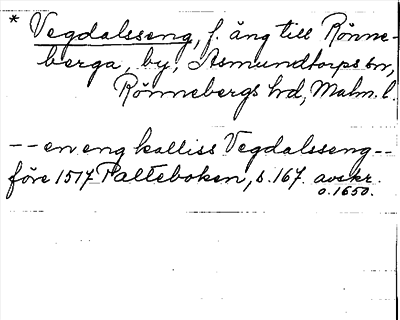 * Vegdalsseng, f. äng till Rönne-
berga, by, Asmundtorps sn,
Rönnebergs hd, Malm. l.
-- en eng kalliss Vegdalsseng --
före 1517 Palteboken, s. 167. avskr.
o. 1650.